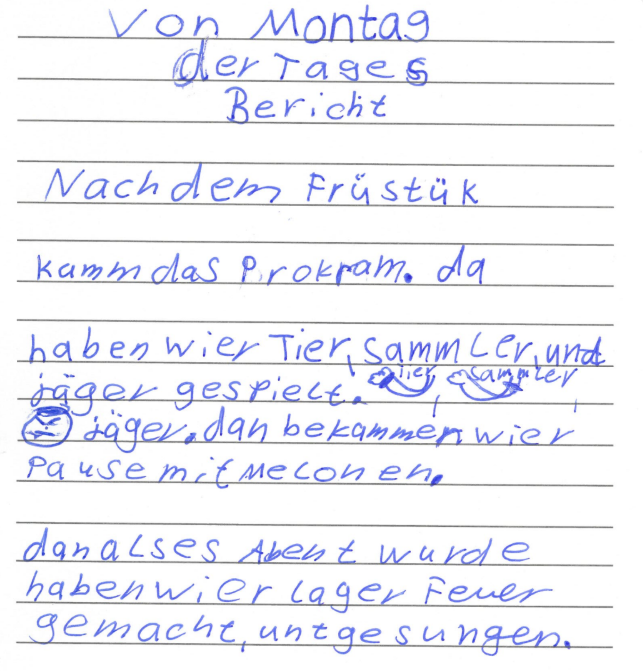 Von Montag
der Tages
Bericht
Nachdem Früstük
kamm das Prokram. da
haben wier Tier, sammler, und
jäger gespielt. Tier, sammler,
jäger. dan bekammen wier
Pause mit Melonen.
dan alses Abent wurde
haben wier lager Feuer
gemacht, unt gesungen.